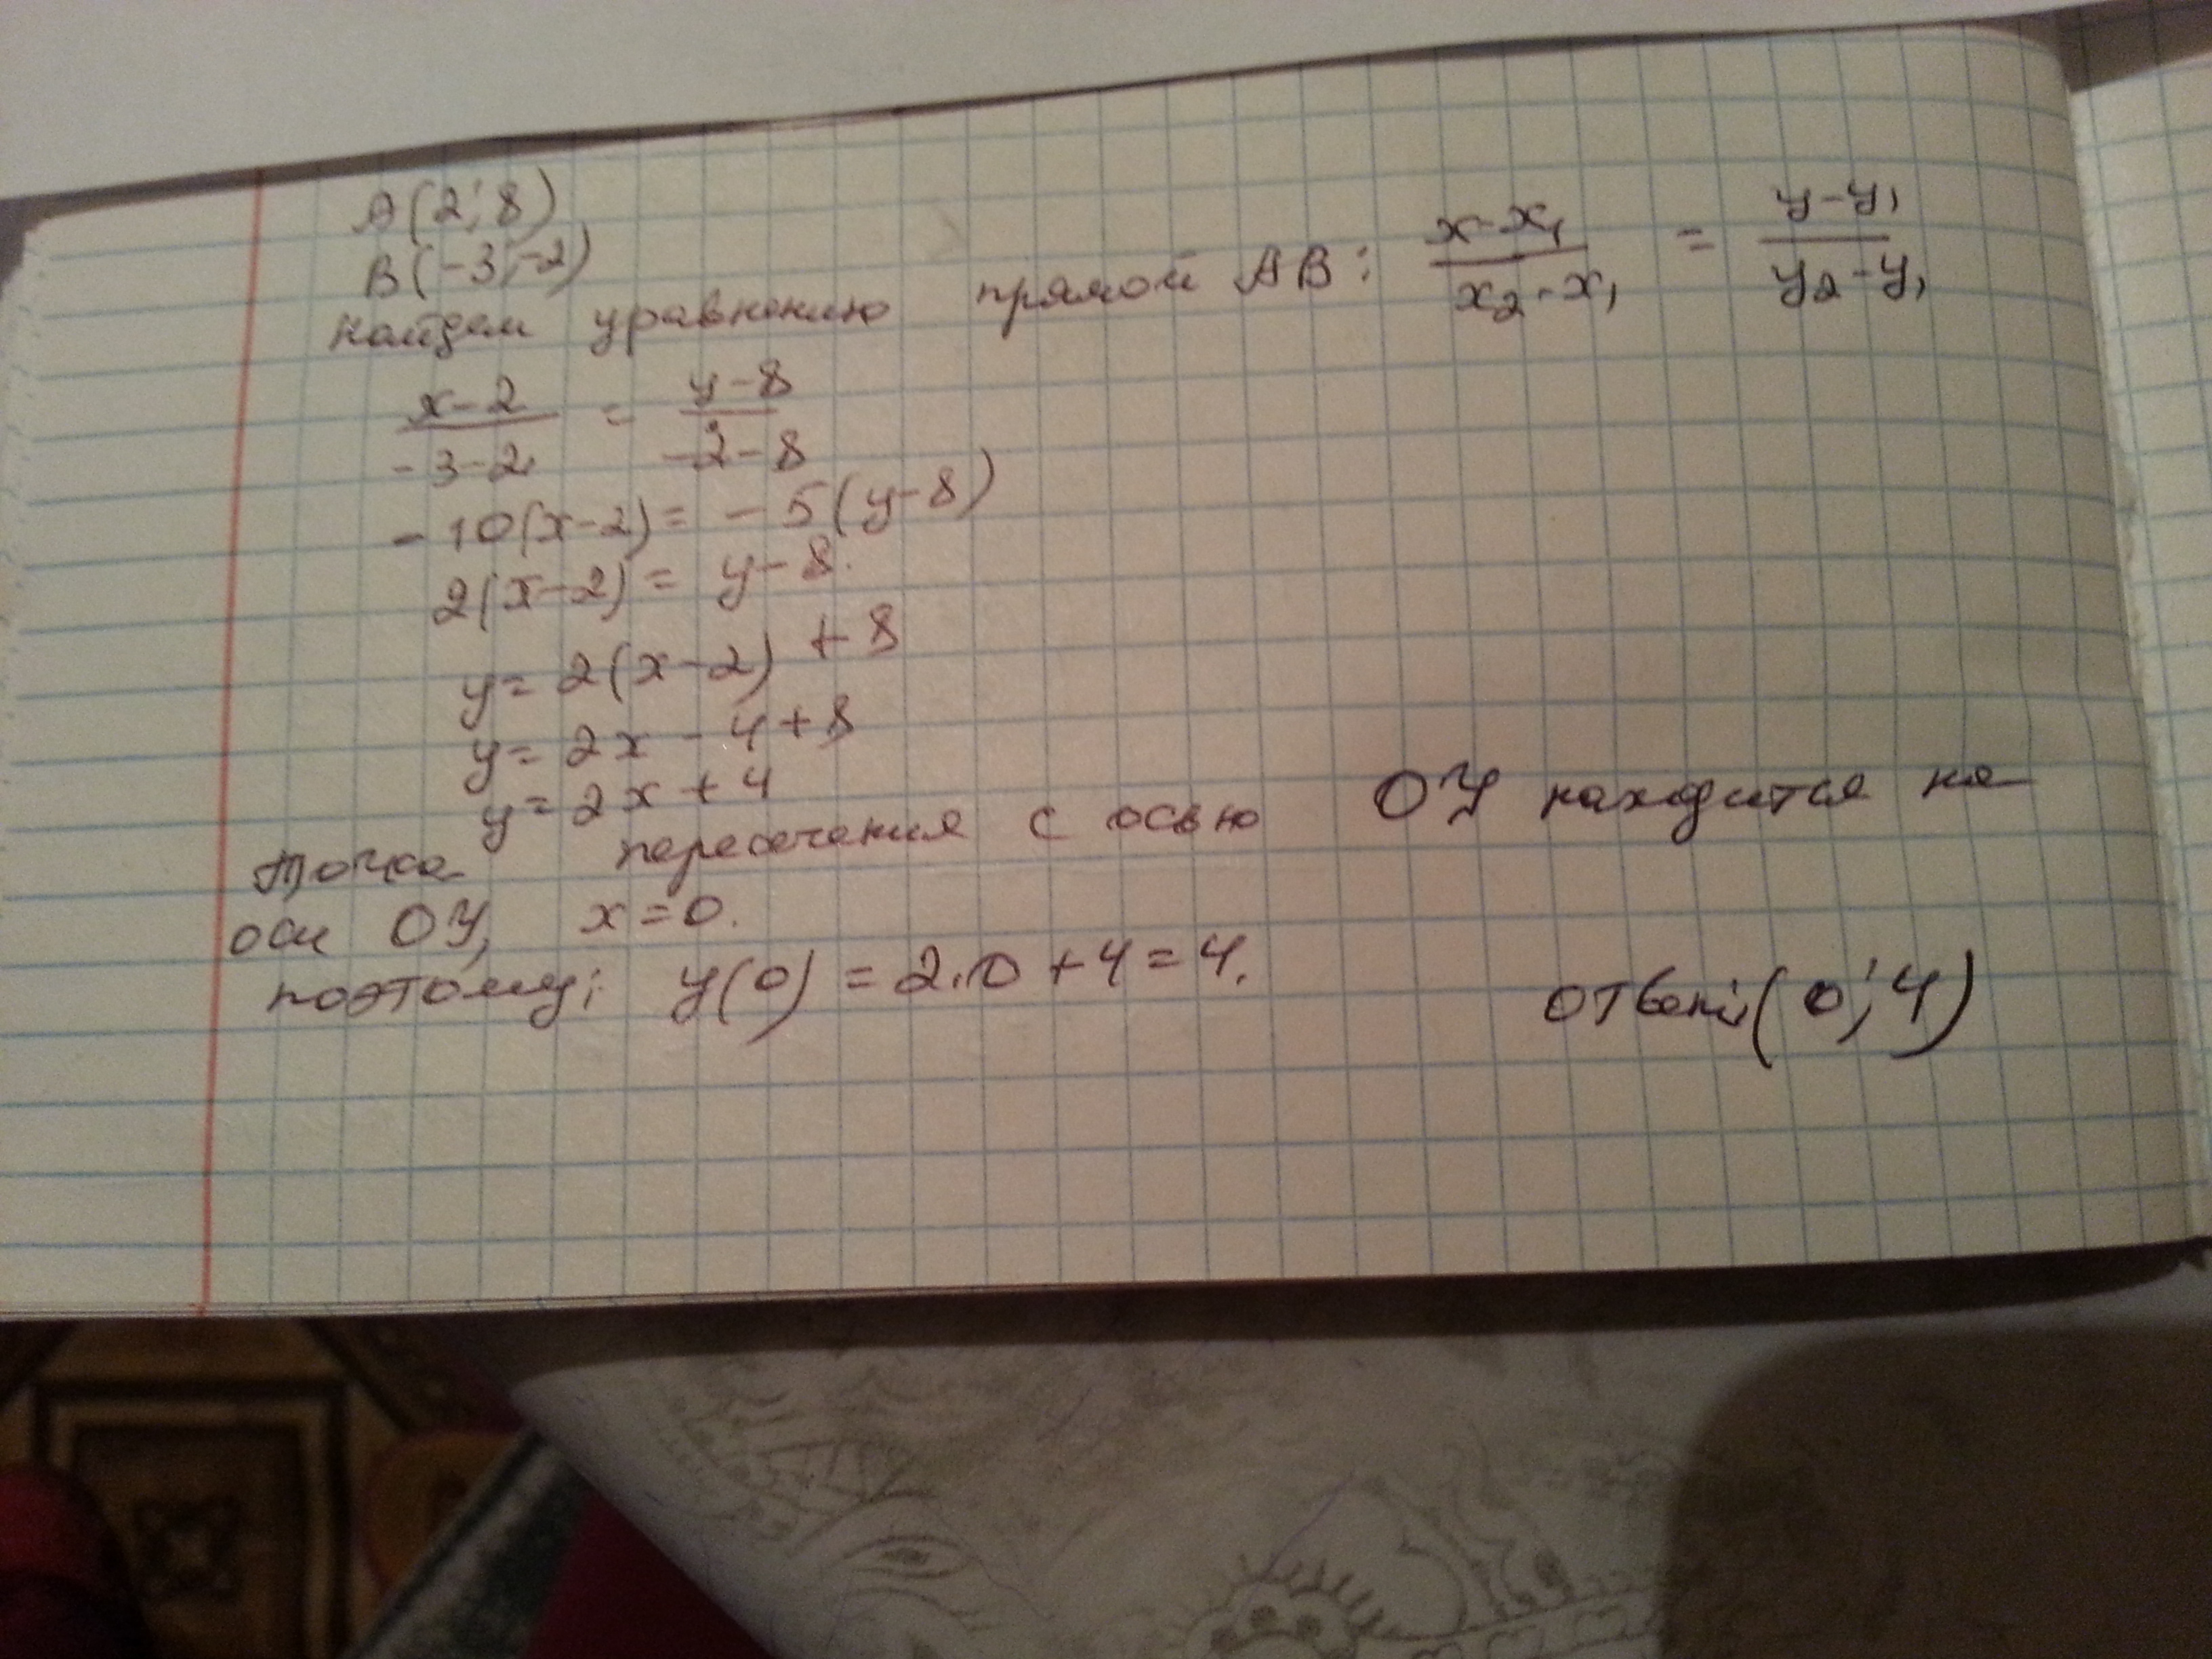 A(2; 8)
B(-3; -2)
найдем уравнению прямой AB: (x-x₁)/(x₂-x₁) = (y-y₁)/(y₂-y₁)
(x-2)/(-3-2) = (y-8)/(-2-8)
-10(x-2) = -5(y-8)
2(x-2) = y-8.
y = 2(x-2) + 8
y = 2x - 4 + 8
y = 2x + 4
Точка пересечения с осью ОУ находится на
оси ОУ, x = 0.
поэтому: y(0) = 2·0 + 4 = 4.
ответ: (0; 4)